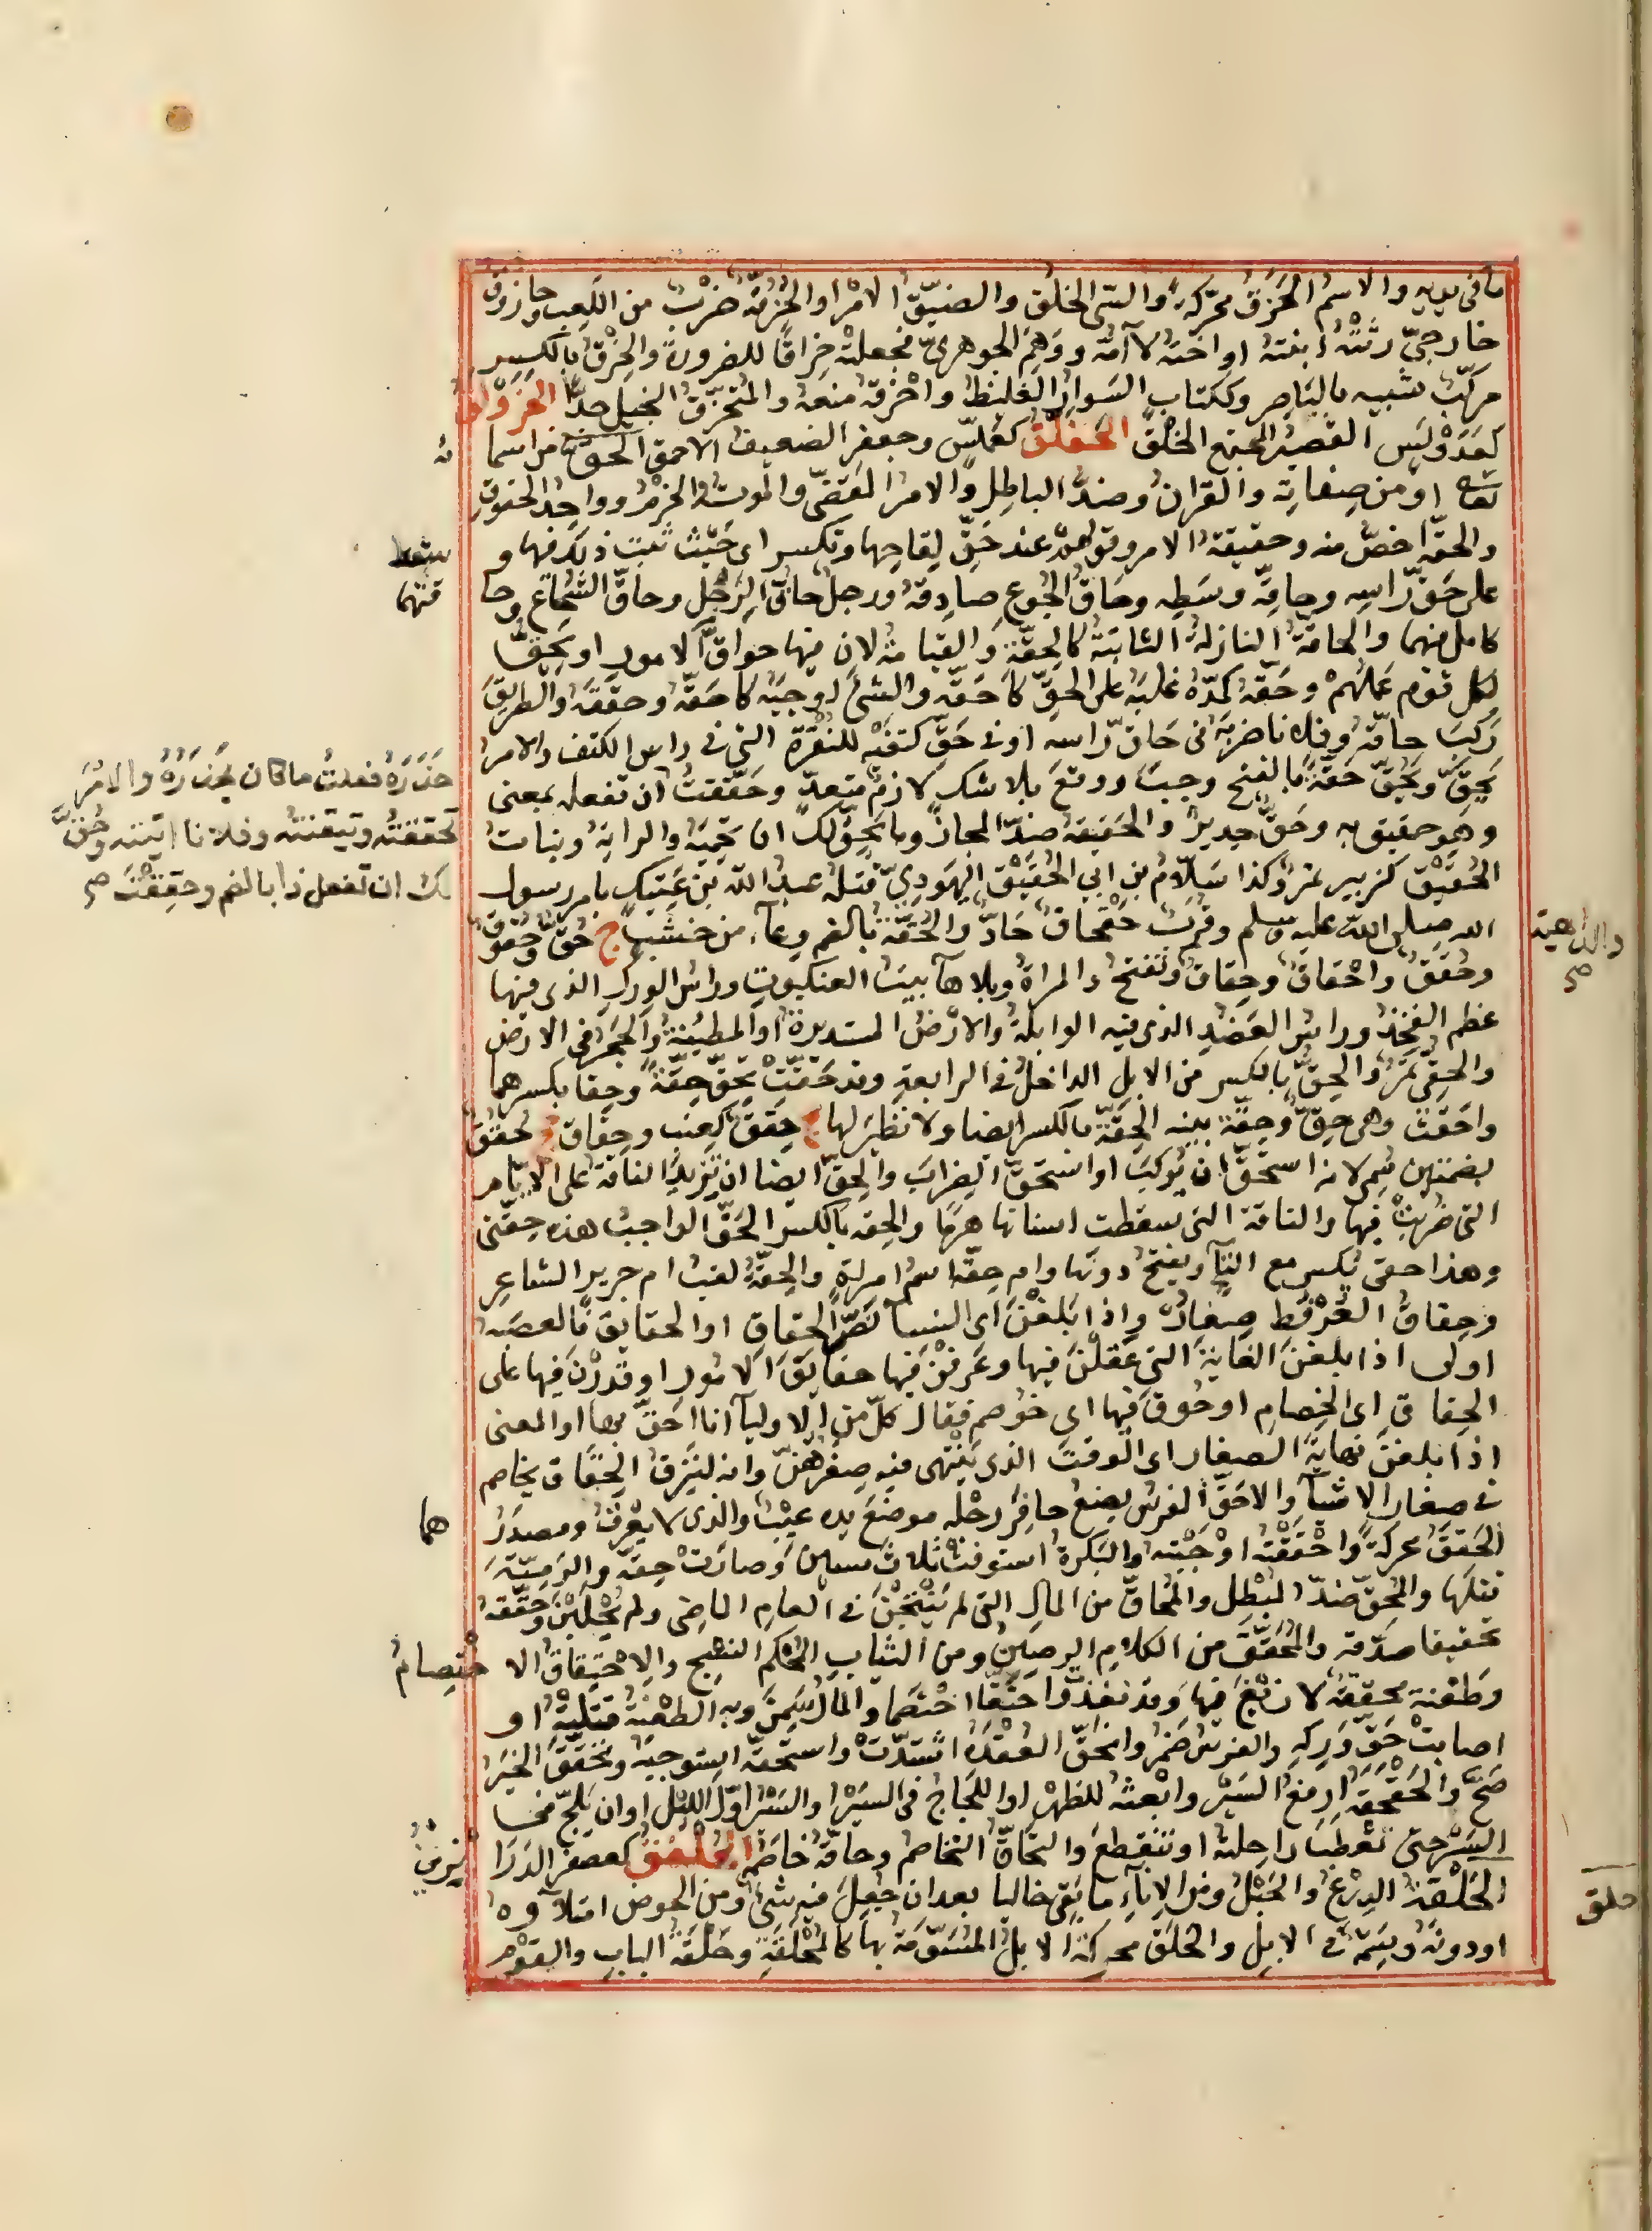 ما في يديه والاسم الحزق محركة والسيئ الخلق والضيق الامر او الحزقة ضرب من اللعب وحازوق
خارجي رثته ابنته او اخته لا امه ووهم الجوهري فجعلته حزاقا للضرورة والحزق بالكسر
مركب شبيه بالباصر وككتاب السوار الغليظ واحزقه منعه والمتحزق البخيل جدا الحزولق
كفدوكس القصير المجتمع الخلق الحفلق كعملس وجعفر الضعيف الاحمق الحق من اسما ئه
تعالى او من صفاته والقران وضد الباطل والامر المقضي والموت والحزم وواحد الحقوق
والحقة اخص منه وحقيقة الامر وقولهم عند حق لقاحها وتكسر اي حيث ثبت ذلك فيها و سقط
على حق راسه وحاقه وسطه وحاق الجوع صادقه ورجل حاق الرجل وحاق الشجاع وحا قتهما
كامل فيهما والحاقة النازلة الثابتة كالحقة والقيامة لان فيها حواق الامور او يحق
لكل قوم عملهم وحقه كمده غلبه على الحق كاحقه والشي اوجبه كاحقه وحققه والطريق
ركب حاقه وفلانا ضربه في حاق راسه او في حق كتفه للنقرة التي في راس الكتف والامر
يحق ويحق حقة بالفتح وجب ووقع بلا شك لازم متعد وحققت ان تفعله بمعنى
وهو حقيق به وحق جدير والحقيقة ضد المجاز وما يحق لك ان تحميه والراية وبنات
الحقيق كزبير تمر وكذا سلام بن ابي الحقيق اليهودي قتله عبد الله بن عتيك بامر رسول
الله صلى الله عليه وسلم وقرب حقحاق حاد والحقة بالضم وعاء من خشب ج حق وحقوق
وحقق واحقاق وحقاق وتفتح والمراة وبلا هاء بيت العنكبوت وراس الورك الذي فيها
عظم الفخذ وراس العضد الذي فيه الوابلة والارض المستديرة او المطمئنة والجحر في الارض
والحقي تمر والحق بالكسر من الابل الداخل في الرابعة وقد حقت تحق حقة وحقا بكسرهما
واحقت وهي حق وحقة بينه الحقة بالكسر ايضا ولا نظير لها ج حقق كعنب وحقاق جج حقق
بضمتين سمي لانه استحق ان يركب او استحق الضراب والحق ايضا ان تزيد الناقة على الايام
التي ضربت فيها والناقة التي سقطت اسنانها هرما والحقه بالكسر الحق الواجب هذه حقتي
وهذا حقي يكسر مع التاء ويفتح دونها وام حقة اسم امراة والحقة لقب ام جرير الشاعر
وحقاق العرفط صغاره واذا بلغن اي النساء نص الحقاق او الحقايق فالعصبه
اولى اذا بلغن الغاية التي عقلن فيها وعرفن فيها حقايق الامور او قدرن فيها على
الحقاق اي الخصام او حوق فيها اي خوصم فقال كل من الاولياء انا احق بها او المعنى
اذا بلغن نهاية الصغار اي الوقت الذي ينتهي فيه صغرهن وانه لنزق الحقاق يخاصم
في صغار الاشياء والاحق الفرس يضع حافر رجله موضع يده عيب والذي لا يعرق ومصدر هما
الحقق محركة واحققته اوجبته والبكرة استوفت ثلاث سنين وصارت حقة والرمية
قتلها والمحق ضد المبطل والمحاق من المال التي لم ينتجن في العام الماضي ولم يحلبن وحققه
تحقيقا صدقه والمحقق من الكلام الرصين ومن الثياب المحكم النسج والاحتقاق الا ختصام
وطعنة محتقة لا زيغ فيها وقد نفذت واحتقا اختصما والمال سمن وبه الطعنة قتلته او
اصابت حق وركه والفرس ضمر وانحقت العقدة اشتدت واستحقه استوجبه وتحقق الخبر
صح والحقحقة ارفع السير واتعبه للظهر او اللجاج في السير او السير اول الليل او ان يلج في
السير حتى تعطب راحلته او تنقطع والتحاق التخاصم وحاقه خاصمه الحلفق كعصفر الدرا بزين
الحلقة الدرع والحبل ومن الاناء ما بقي خاليا بعد ان جعل فيه شي ومن الحوض امتلاؤه
او دونه وسمة في الابل والحلق محركة الابل الموسومة بها كالمحلقة وحلقة الباب والقوم
حذره فعلت ما كان يحذره والامر
تحققته وتيقنته وفلانا اتيته وحق
لك ان تفعل ذا بالضم وحققت صح
والداهية
صح
حلق